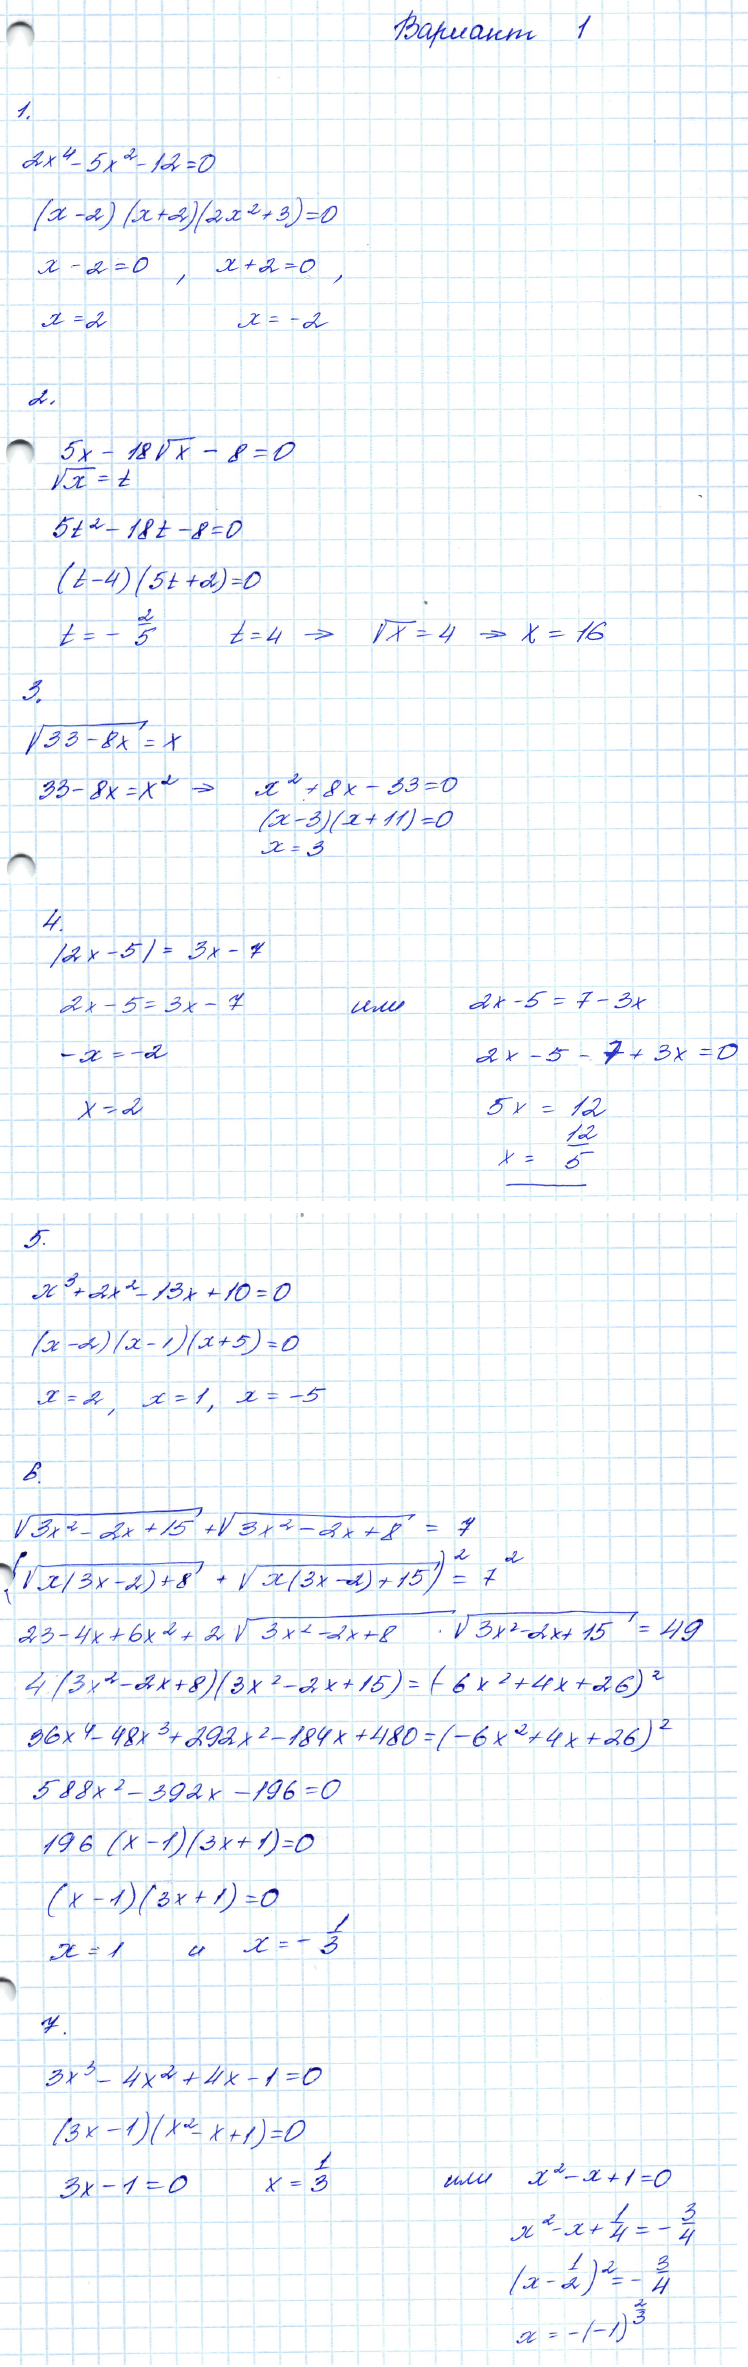 Вариант 1
1.
2x⁴ - 5x² - 12 = 0
(x - 2)(x + 2)(2x² + 3) = 0
x - 2 = 0 , x + 2 = 0 ,
x = 2 x = -2
2.
5x - 18√x - 8 = 0
√x = t
5t² - 18t - 8 = 0
(t - 4)(5t + 2) = 0
t = - 2/5 t = 4 ⇒ √x = 4 ⇒ x = 16
3.
√(33 - 8x) = x
33 - 8x = x² ⇒ x² + 8x - 33 = 0
(x - 3)(x + 11) = 0
x = 3
4.
|2x - 5| = 3x - 7
2x - 5 = 3x - 7 или 2x - 5 = 7 - 3x
-x = -2 2x - 5 - 7 + 3x = 0
x = 2 5x = 12
x = 12/5
5.
x³ + 2x² - 13x + 10 = 0
(x - 2)(x - 1)(x + 5) = 0
x = 2, x = 1, x = -5
6.
√(3x² - 2x + 15) + √(3x² - 2x + 8) = 7
(√(x(3x - 2) + 8) + √(x(3x - 2) + 15))² = 7²
23 - 4x + 6x² + 2√(3x² - 2x + 8) · √(3x² - 2x + 15) = 49
4(3x² - 2x + 8)(3x² - 2x + 15) = (-6x² + 4x + 26)²
36x⁴ - 48x³ + 292x² - 184x + 480 = (-6x² + 4x + 26)²
588x² - 392x - 196 = 0
196(x - 1)(3x + 1) = 0
(x - 1)(3x + 1) = 0
x = 1 и x = - 1/3
7.
3x³ - 4x² + 4x - 1 = 0
(3x - 1)(x² - x + 1) = 0
3x - 1 = 0 x = 1/3 или x² - x + 1 = 0
x² - x + 1/4 = - 3/4
(x - 1/2)² = - 3/4
x = -(-1)^(2/3)